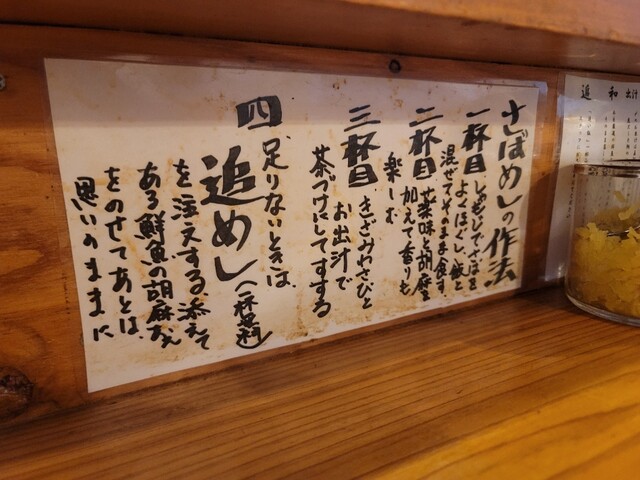 さばめしの作法
一杯目 しゃもじでさばを
よくほぐし、飯と
混ぜてそのまま食す。
二杯目 薬味と胡麻を
加えて香りも
楽しむ
三杯目 きざみわさびと
お出汁で
茶づけにしてすする
四 足りないときは、
追めし(一杯無料)
を注文する 添えて
ある鮮魚の胡麻あえ
をのせてあとは、
思いのままに
追 和 出汁